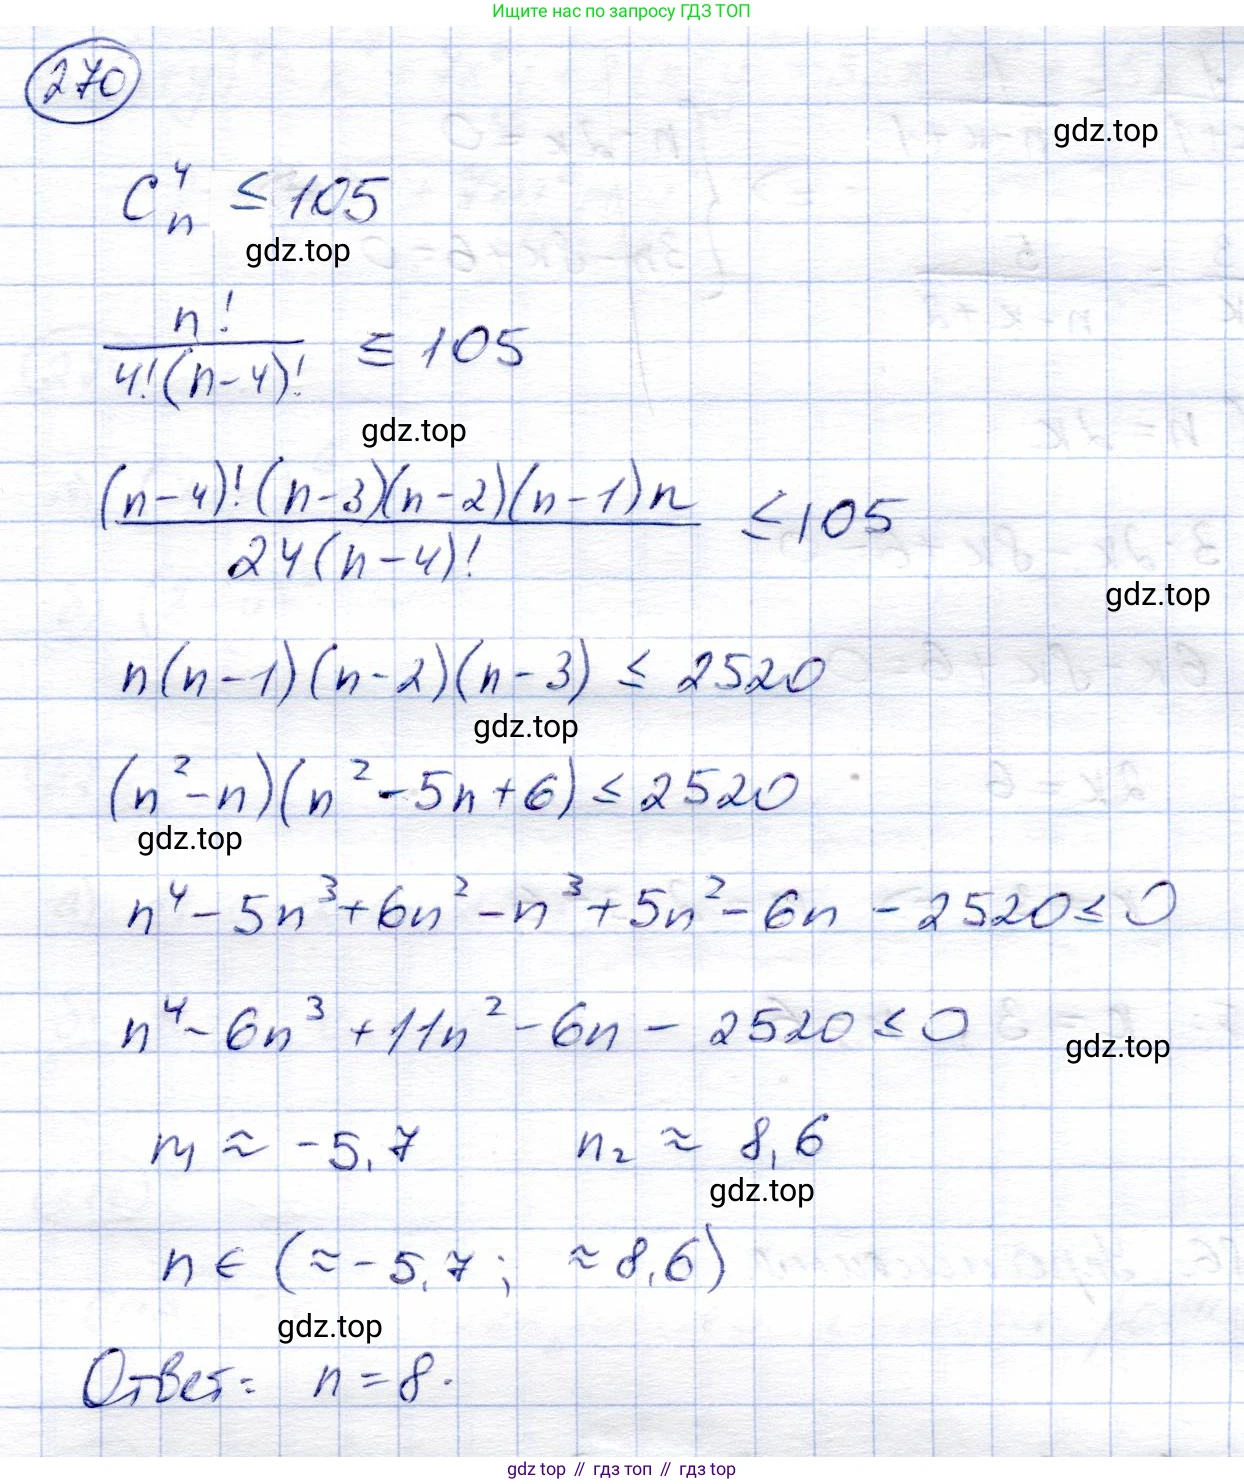 Ищите нас по запросу ГДЗ ТОП
270
gdz.top
C_n^4 ≤ 105
gdz.top
n! / 4!(n-4)! ≤ 105
gdz.top
(n-4)!(n-3)(n-2)(n-1)n / 24(n-4)! ≤ 105
gdz.top
n(n-1)(n-2)(n-3) ≤ 2520
gdz.top
(n²-n)(n²-5n+6) ≤ 2520
gdz.top
n⁴-5n³+6n²-n³+5n²-6n-2520≤0
n⁴-6n³+11n²-6n-2520≤0
gdz.top
n₁ ≈ -5,7 n₂ ≈ 8,6
gdz.top
n ∈ (≈-5,7; ≈8,6)
gdz.top
Ответ: n=8.
gdz top // гдз топ // gdz top